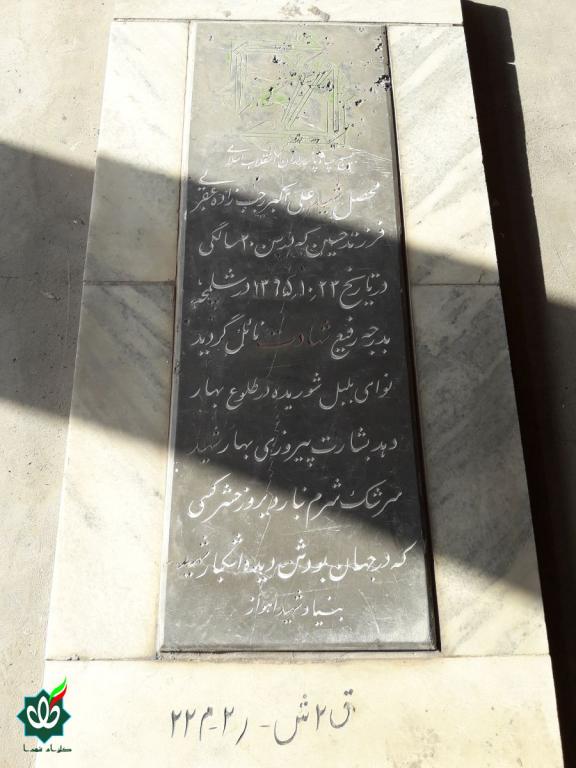 بسیج سپاه پاسداران انقلاب اسلامی
محصل شهید علی اکبر رجب زاده عقربی
فرزند حسین که در سن ۲۰ سالگی
در تاریخ ۱۳۶۵٫۱۰٫۲۳ در شلمچه
بدرجه رفیع شهادت نائل گردید
نوای بلبل شوریده در طلوع بهار
دهد بشارت پیروزی بهار شهید
سرشک شرم نبارد بروز حشر کسی
که در جهان بودش دیده اشکبار شهید
بنیاد شهید اهواز
ق ۲ ش - ر ۲ - م ۲۲
گلزار شهدا